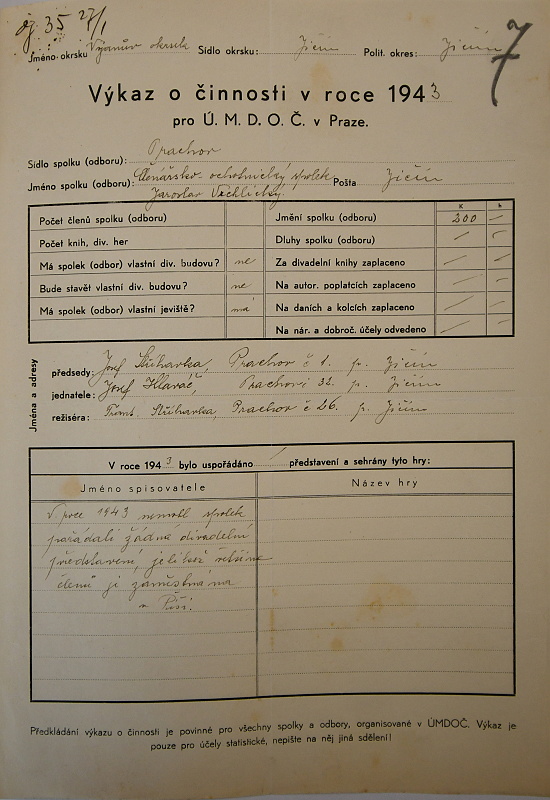 35 27/1
7
Jméno okrsku okrsek Sídlo okrsku: Jičín Polit. okres: Jičín
Výkaz o činnosti v roce 1943
pro Ú. M. D. O. Č. v Praze.
Sídlo spolku (odboru): Prachov
Jméno spolku (odboru): Čtenářsko-ochotnický spolek Pošta Jičín
Jaroslav Vrchlický.
K h
Počet členů spolku (odboru) Jmění spolku (odboru) 200 —
Počet knih, div. her Dluhy spolku (odboru) — —
Má spolek (odbor) vlastní div. budovu? ne Za divadelní knihy zaplaceno — —
Bude stavět vlastní div. budovu? ne Na autor. poplatcích zaplaceno — —
Má spolek (odbor) vlastní jeviště? má Na daních a kolcích zaplaceno — —
Na nár. a dobroč. účely odvedeno — —
Jména a adresy
předsedy: Josef Prachov č 1. p. Jičín
jednatele: Josef Hlaváč, Prachov č 32. p. Jičín
režiséra: Frant. Prachov č 26. p. Jičín
V roce 1943 bylo uspořádáno / představení a sehrány tyto hry:
Jméno spisovatele Název hry
V roce 1943 nemohl spolek
pořádati žádná divadelní
představení, jelikož většina
členů je zaměstnána
v
Předkládání výkazu o činnosti je povinné pro všechny spolky a odbory, organisované v ÚMDOČ. Výkaz je
pouze pro účely statistické, nepište na něj jiná sdělení!